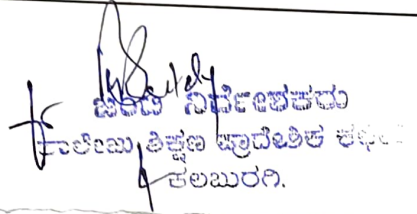 ಜಂಟಿ ನಿರ್ದೇಶಕರು
ಕಾಲೇಜು ಶಿಕ್ಷಣ ಪ್ರಾದೇಶಿಕ
ಕಲಬುರಗಿ.